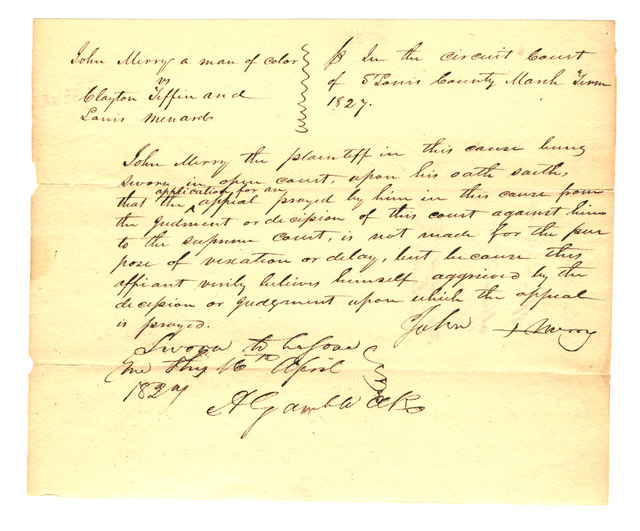 John Merry a man of color
vs
Clayton Tiffin and
Louis Menard
In the circuit Court
of St Louis County March Term
1827.
John Merry the plaintiff in this cause being
sworn in open court, upon his oath saith,
that the application for an appeal prayed by him in this cause from
the judment or decision of this court against him
to the supreme court, is not made for the pur
pose of vexation or delay, but because this
affiant verily believes himself aggrieved by the
decision or judgment upon which the appeal
is prayed.
John + Merry
Sworn to before
me this 16th April
1827
A Gamble Clk